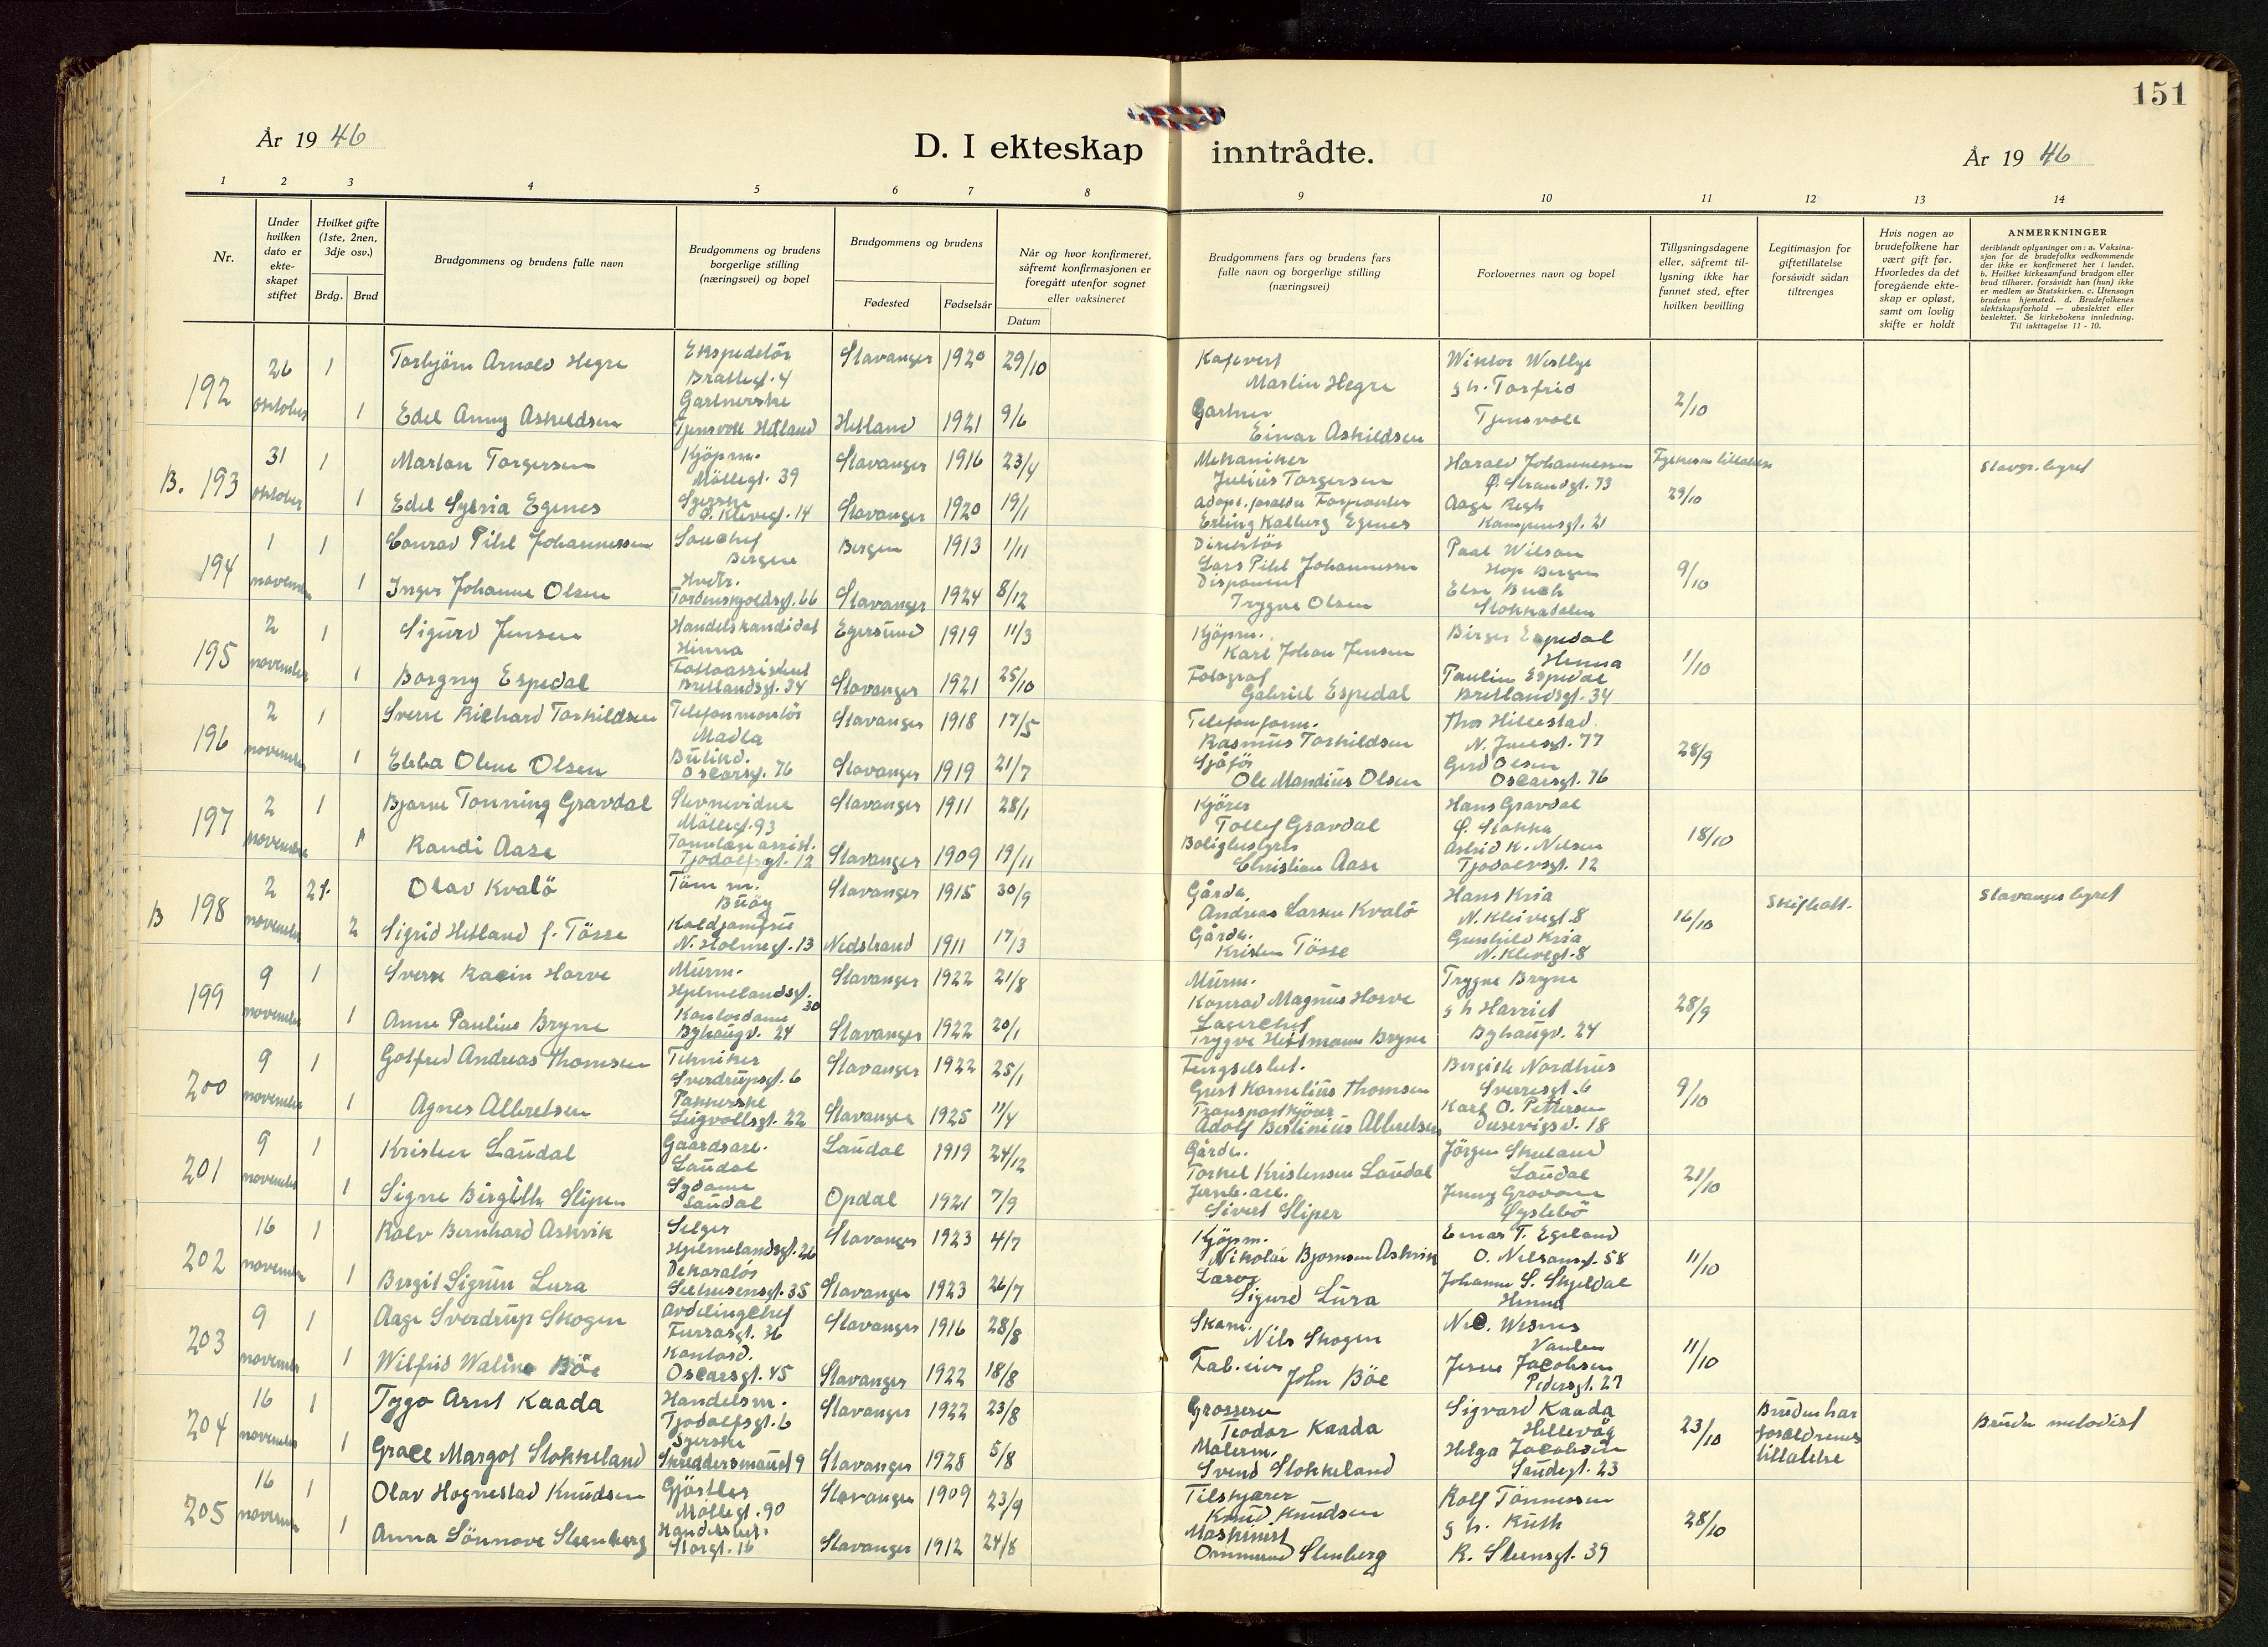 151
År 1946
D. I ekteskap inntrådte.
År 1946
1 2 3 4 5 6 7 8 9 10 11 12 13 14
Nr.
Under hvilken dato er ekteskapet stiftet
Hvilket gifte (1ste, 2nen, 3dje osv.)
Brdg. Brud
Brudgommens og brudens fulle navn
Brudgommens og brudens borgerlige stilling (næringsvei) og bopel
Brudgommens og brudens
Fødested
Fødselsår
Når og hvor konfirmeret, såfremt konfirmasjonen er foregått utenfor sognet eller vaksineret
Datum
Brudgommens fars og brudens fars fulle navn og borgerlige stilling (næringsvei)
Forlovernes navn og bopel
Tillysningsdagene eller, såfremt tillysning ikke har funnet sted, efter hvilken bevilling
Legitimasjon for giftetillatelse forsåvidt sådan tiltrenges
Hvis nogen av brudefolkene har vært gift før. Hvorledes da det foregående ekteskap er opløst, samt om lovlig skifte er holdt
ANMERKNINGER
deriblandt oplysninger om: a. Vaksinasjon for de brudefolks vedkommende der ikke er konfirmeret her i landet. b. Hvilket kirkesamfund brudgom eller brud tilhører, forsåvidt han (hun) ikke er medlem av Statskirken. c. Utensogn brudens hjemsted. d. Brudefolkenes slektskapsforhold — ubeslektet eller beslektet. Se kirkebokens innledning. Til iakttagelse 11 - 10.
192 26 oktober 1 Torbjörn Arnold Hegre Ekspeditör Stavanger 1920 29/10 Kafevert Martin Hegre
1 Edel Anny Askeldsen Gartnerske Tjensvoll Hetland Hetland 1921 9/6 Gartner Einar Askildsen Tjensvoll 2/10
B. 193 31 oktober 1 Marton Torgersen Kjöpm. Möllegt. 39 Stavanger 1916 23/4 Mekaniker Julius Torgersen Harald Johannessen Ö. Strandgt. 73
1 Edel Sylvia Egenes Syerske Stavanger 1920 19/1 Erling Kalberg Egenes Kampensgt. 21 29/10 Stavgr. byret
194 1 november 1 Conrad Pihl Johannessen Bergen Bergen 1913 1/11 Direktör Lars Pihl Johannessen Paal Wilson Hop Bergen
1 Inger Johanne Olsen Tordenskjoldsgt. 66 Stavanger 1924 8/12 Disponent Trygve Olsen Else Buch Stokkadalen 9/10
195 2 november 1 Sigurd Jensen Handelskandidat Hinna Egersund 1919 11/3 Kjöpm. Karl Johan Jensen Birger Espedal Hinna
1 Borgny Espedal Fotoassistent Breilandsgt. 34 Stavanger 1921 25/10 Fotograf Gabriel Espedal Pauline Espedal Breilandsgt. 34 1/10
196 2 november 1 Sverre Richard Torkildsen Telefonmontör Madla Stavanger 1918 17/5 Telefonform. Rasmus Torkildsen Thor Hillestad
1 Ebba Oline Olsen Oscarsgt. 76 Stavanger 1919 21/7 Sjåför Ole Mandius Olsen Gerd Olsen Oscarsgt. 76 28/9
197 2 november 1 Bjarne Tonning Gravdal Stevnevidne Möllegt. 93 Stavanger 1911 28/1 Kjörer Tollef Gravdal Hans Gravdal Ö. Stokka
1 Randi Aase Tjodolfsgt. 12 Stavanger 1909 19/11 Christian Aase Astrid K. Nilsen Tjodolvsgt. 12 18/10
B 198 2 november 2 f. Olav Kvalö Töm m. Buöy Stavanger 1915 30/9 Gårdbr. Andreas Larsen Kvalö Hans Kria N. Kleivegt. 8
2 Sigrid Hetland f. Tösse Koldjomfru N. Holmegt. 13 Nedstrand 1911 17/3 Gårdbr. Kristen Tösse Gunhild Kria N. Klevegt. 8 16/10 Skifteatt. Stavanger byret
199 9 november 1 Sverre Racin Horve Murm. Hjelmelandsgt. 30 Stavanger 1922 21/8 Murm. Konrad Magnus Horve Trygve Bryne
1 Anne Pauline Bryne Kontordame Byhaugv. 24 Stavanger 1922 20/1 Lagerchef Trygve Heitmann Bryne g h Harriet Byhaugv. 24 28/9
200 9 november 1 Gotfred Andreas Thomsen Tekniker Sverdrupsgt. 6 Stavanger 1922 25/1 Fengselsbet. Gert Kornelius Thomsen Bergith Nordhus Sverresgt. 6
1 Agnes Albretsen Pakkerske Stavanger 1925 11/4 Transportkjörer Adolf Bertinius Albretsen Karl O. Pettersen Dusevigsv. 18 9/10
201 9 november 1 Kristen Laudal Gaardsarb. Laudal Laudal 1919 24/12 Gårdbr. Torkel Kristensen Laudal Jörgen Skuland Laudal
1 Signe Birgith Slipen Sydame Laudal Opdal 1921 7/9 Jernb.arb. Sivert Sliper Jenny Grovane Öyslebö 21/10
202 16 november 1 Rolv Bernhard Askvik Selger Hjelmelandsgt. 26 Stavanger 1923 4/7 Kjöpm. Nikolai Bjornsen Askvik Einar T. Egeland O. Nilsensgt. 58
1 Bergit Sigrun Lura Dekoratör Seehusensgt. 35 Stavanger 1923 26/7 Lærer Sigurd Lura Johanne S. Skjeldal Hinna 11/10
203 9 november 1 Aage Sverdrup Skogen Avdelingchef Furrasgt. 36 Stavanger 1916 28/8 Nils Skogen Vaulen
1 Wilfrid Waline Böe Kontord. Oscarsgt. 45 Stavanger 1922 18/8 Fab.eier John Böe Jacobsen Pedersgt. 27 11/10
204 16 november 1 Tygo Arnt Kaada Handelsm. Tjodolfsgt. 6 Stavanger 1922 23/8 Grosserer Teodor Kaada Sigvard Kaada Hillevåg
1 Grace Margot Stokkeland Syerske Stavanger 1928 5/8 Malerm. Svend Stokkeland Helga Jacobsen Saudegt. 23 23/10 Bruden har foreldrenes tillatelse Bruden metodist
205 16 november 1 Olav Hognestad Knudsen Gjörtler Möllegt. 90 Stavanger 1909 23/9 Tilskjærer Knud Knudsen Rolf Tönnessen
1 Anna Sönnove Steenberg Storgt. 16 Stavanger 1912 24/8 Maskinist Ommund Stenberg g h. Ruth R. Steensgt. 39 28/10